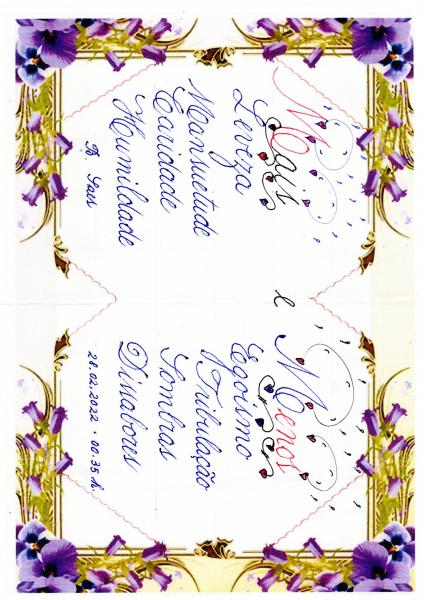 Mais
Leveza
Mansuetude
Caridade
Humildade
e
Menos
Egoísmo
Tribulação
Sombras
Dissabores
28.02.2022 . 00.35 h.